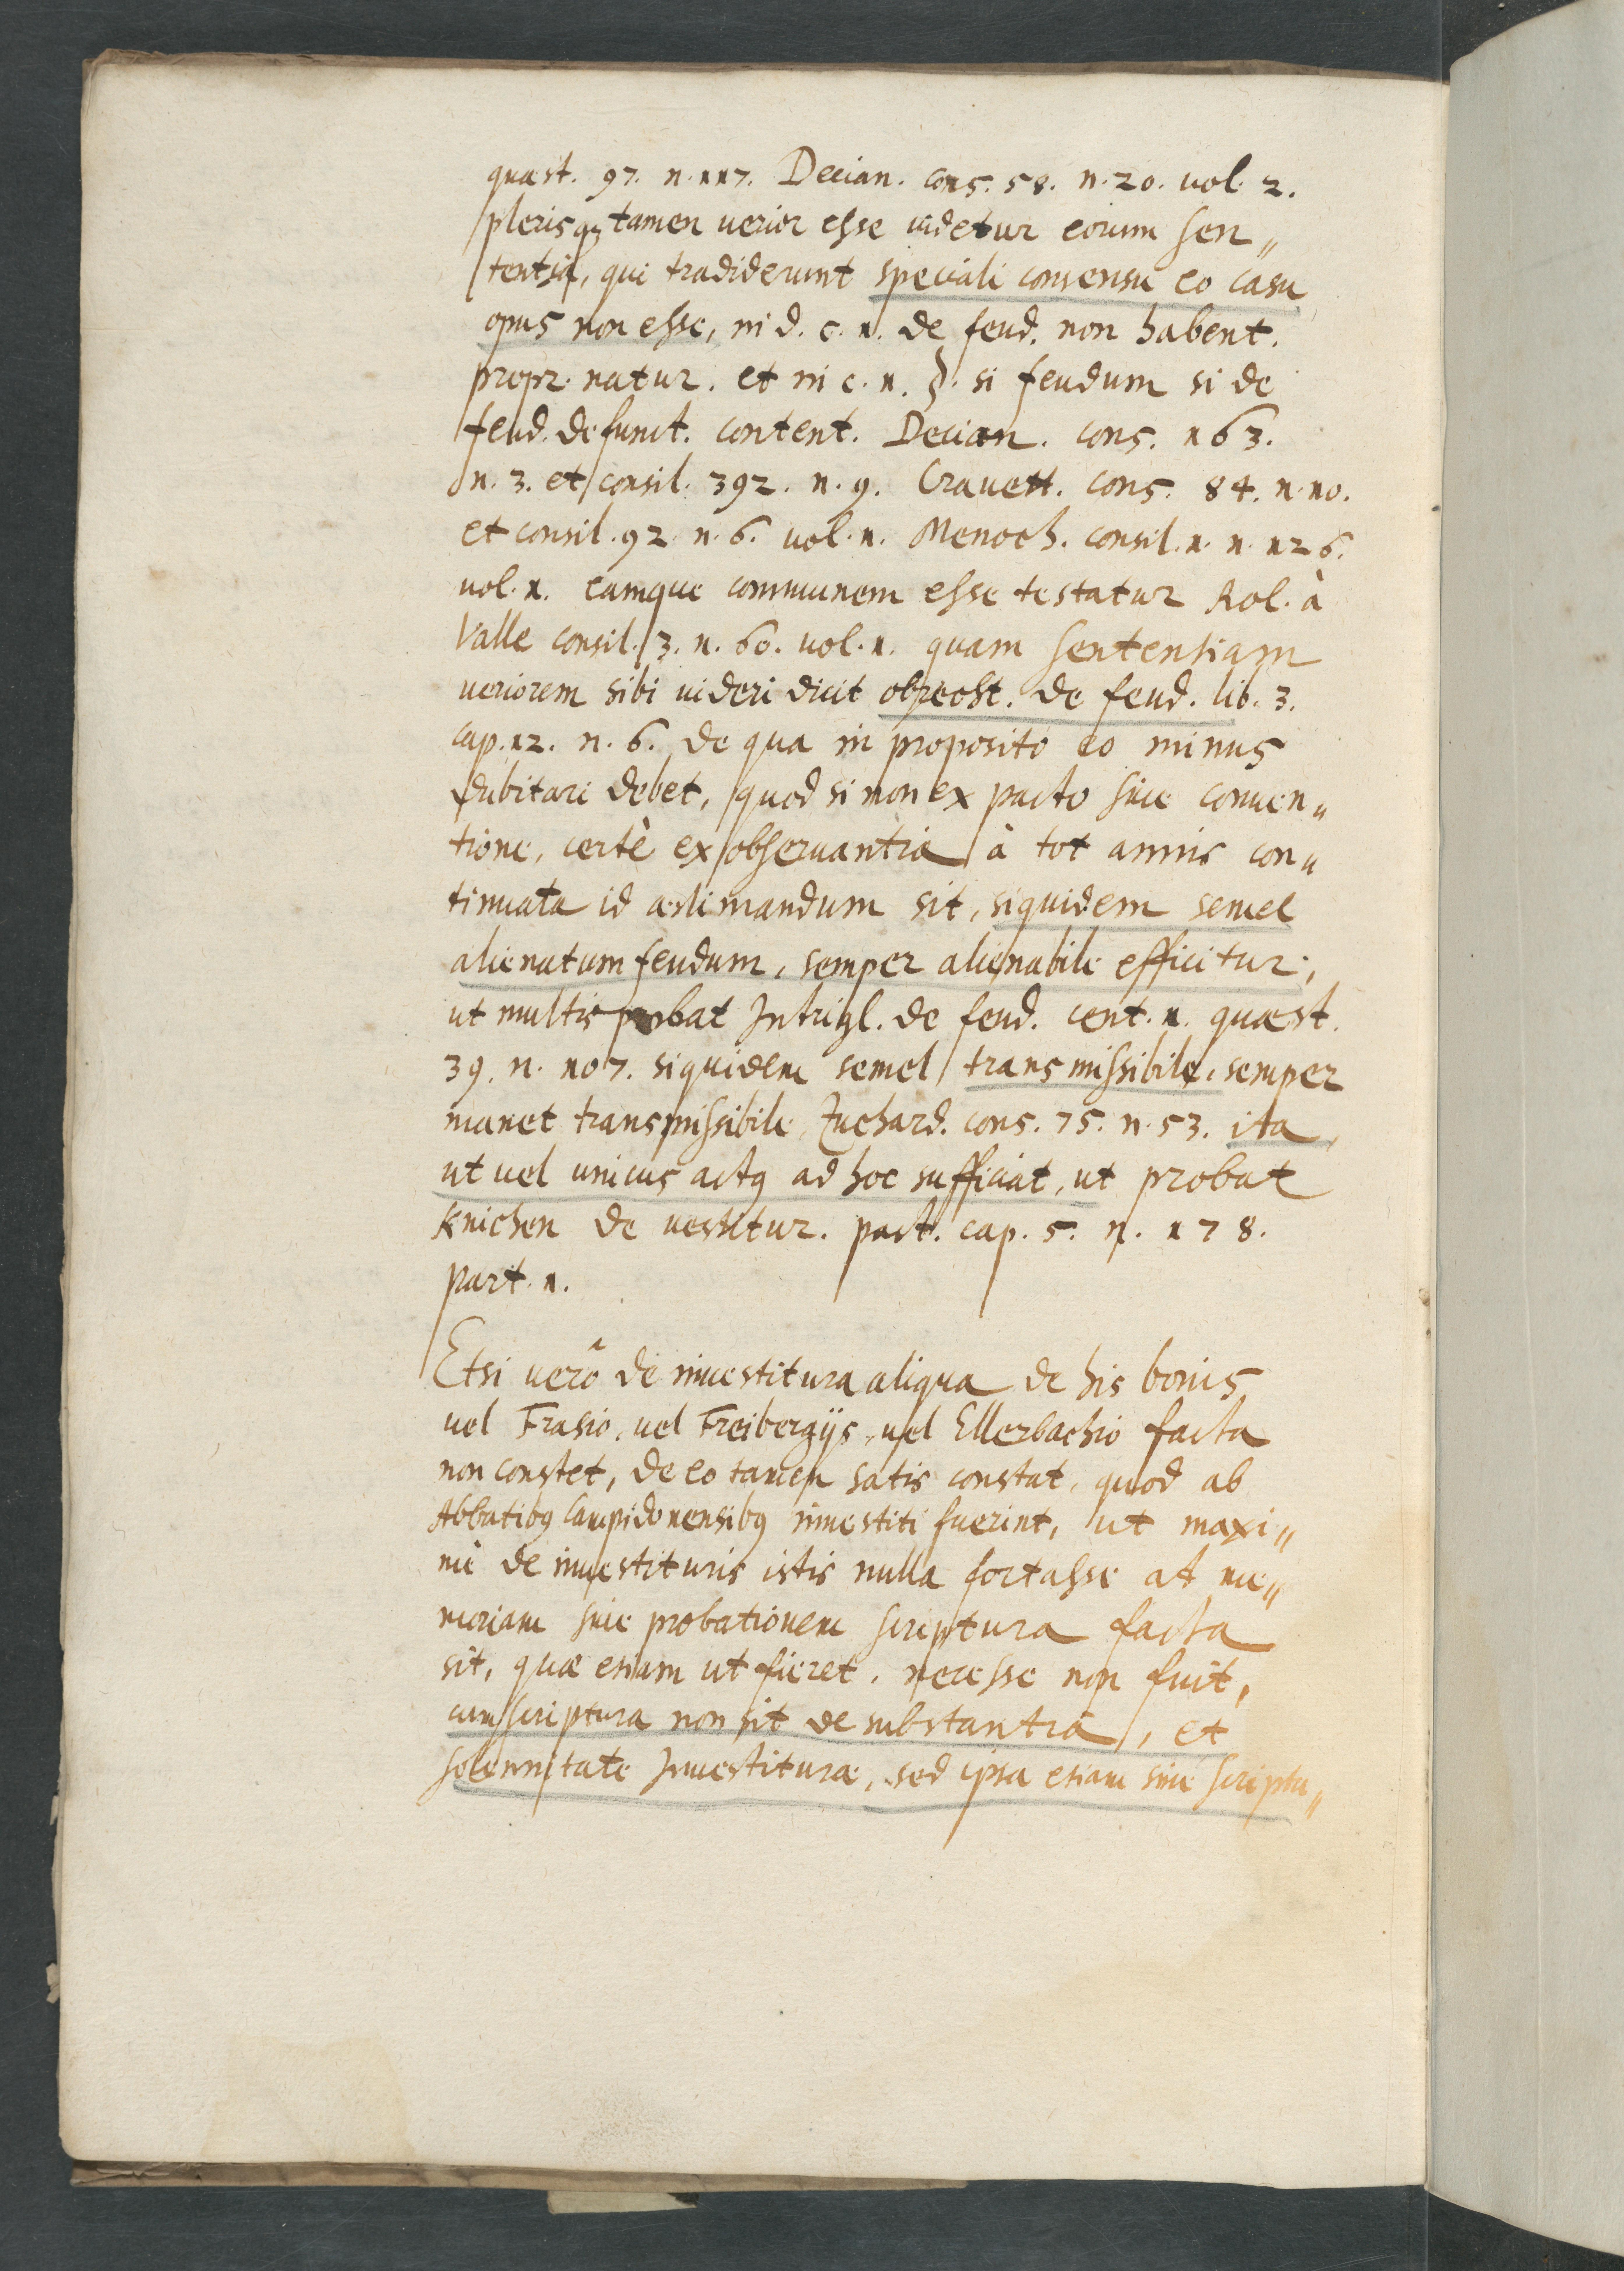 quæst. 97. n. 117. Decian. cons. 58. n. 20. vol. 2.
plerisq; tamen uerior esse uidetur eorum sen„
tentia, qui tradiderunt speciali consensu eo casu
opus non esse, in d. c. 1. de feud. non habent.
propr. natur. et in c. 1. §. si feudum si de
feud. defunct. content. Decian. cons. 163.
n. 3. et consil. 392. n. 9. Crauett. cons. 84. n. 10.
et consil. 92. n. 6. uol. 1. Menoch. consil. 1. n. 126.
uol. 1. eamque communem esse testatur Rol. à
Valle consil. 3. n. 60. uol. 1. quam sententiam
ueriorem sibi uideri dicit obrecht. de feud. lib. 3.
cap. 12. n. 6. de qua in proposito eo minus
dubitari debet, quod si non ex pacto siue conuen„
tione, certè ex obseruantia à tot annis con„
tinuata id æstimandum sit, siquidem semel
alienatum feudum, semper alienabile efficitur,
ut multis probat Intrigl. de feud. cent. 1. quæst.
39. n. 107. siquidem semel transmissibile, semper
manet transmissibile, Zuchard. cons. 75. n. 53. ita,
ut uel unicus actq ad hoc sufficiat, ut probat
Knichen de uestitur. pact. cap. 5. n. 178.
part. 1.
Etsi uerô de inuestitura aliqua de his bonis
uel Frasio, uel Freibergijs, uel Ellerbachio facta
non constet, de eo tamen satis constat, quod ab
Abbatibq Campidonensibq inuestiti fuerint, ut maxi„
mè de inuestituris istis nulla fortasse at me„
moriam siue probationem scriptura facta
sit, quæ etiam ut fieret, necesse non fuit,
cum scriptura non sit de substantia, et
solennitate Inuestituræ, sed ipsa etiam sine scriptu„